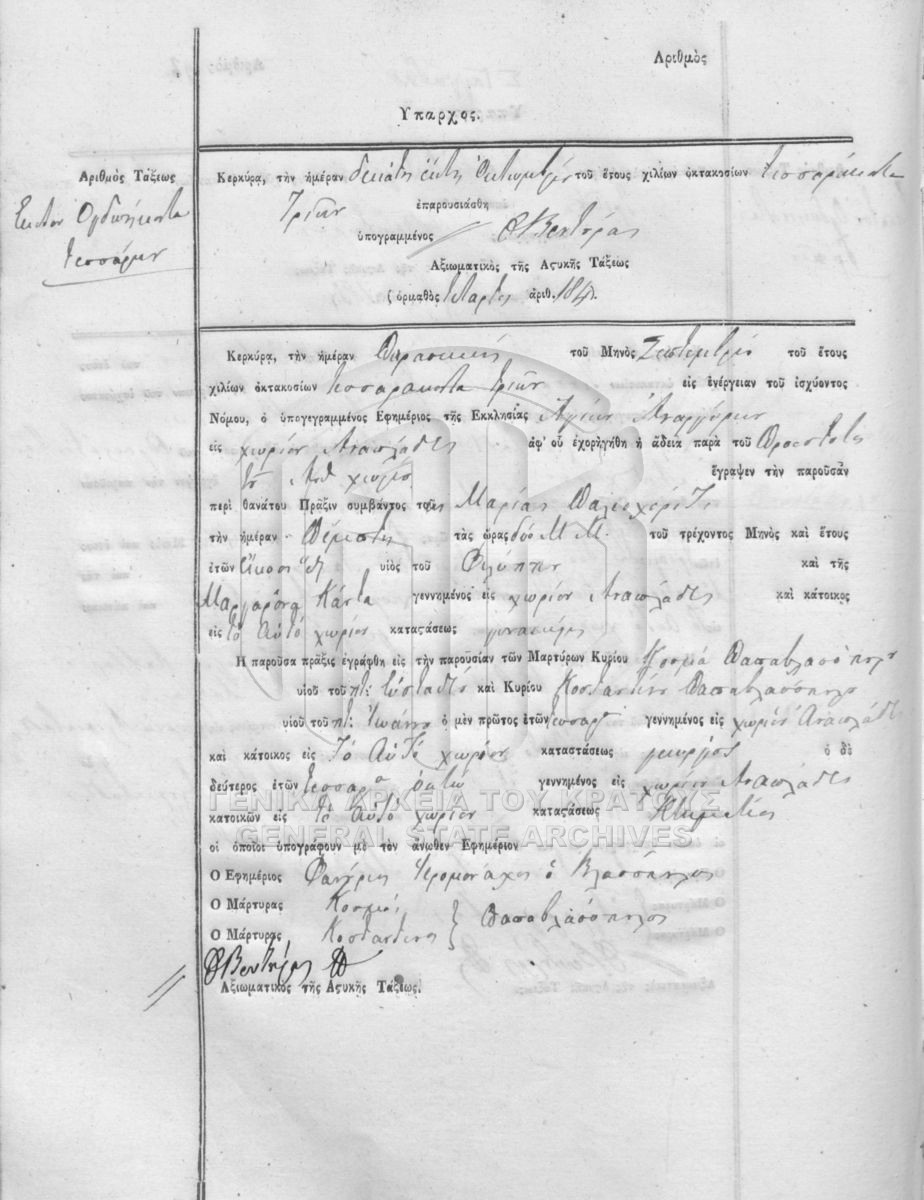 Αριθμὸς
Υπαρχος.
Αριθμὸς Τάξεως
Εκατον Ογδοήκοντα
τεσσάρων
Κερκύρα, τὴν ἡμέραν δεκάτη ἕκτη Ὀκτωμβρίου τοῦ ἔτους χιλίων ὀκτακοσίων τεσσαράκοντα
Τριῶν ἐπαρουσιάσθη
ὑπογραμμένος Βεντύρας
Αξιωματικὸς τῆς Αςυκῆς Τάξεως
(ὁρμαθὸς τέταρτος ἀριθ. 184).
Κερκύρα, τὴν ἡμέραν Παρασκευῆ τοῦ Μηνὸς Σεπτεμβρίου τοῦ ἔτους
χιλίων ὀκτακοσίων τεσσαρακοντα τριῶν εἰς ἐνέργειαν τοῦ ἰσχύοντος
Νόμου, ὁ ὑπογεγραμμένος Εφημέριος τῆς Εκκλησίας Ἁγίων Ἀναργύρων
εἰς χωρίον Αναπλάδες ἀφ' οὗ ἐχορηγήθη ἡ ἄδεια παρὰ τοῦ Προεστοῦ
τοῦ χωρίου ἔγραψεν τὴν παροῦσαν
περὶ θανάτου Πρᾶξιν συμβάντος τῆς Μαρίας
τὴν ἡμέραν Πέμπτη τὰς ὥρας δύο Μ.Μ. τοῦ τρέχοντος Μηνὸς καὶ ἔτους
ἐτῶν εἴκοσι υἱὸς τοῦ Φιλίππου καὶ τῆς
Μαργαρόνα Κάντα γεννημένος εἰς χωρίον Αναπλάδες καὶ κάτοικος
εἰς τὸ Αὐτό χωρίον καταςάσεως
Η παροῦσα πρᾶξις ἐγράφθη εἰς τὴν παρουσίαν τῶν Μαρτύρων Κυρίου Κοσμά Παπαβλασόπουλο
υἱοῦ τοῦ ποτ: Εὐσταθίου καὶ Κυρίου Κοσταντίνο Παπαβλασόπουλο
υἱοῦ τοῦ ποτ: Ἰωάννου ὁ μὲν πρῶτος ἐτῶν γεννημένος εἰς χωρίον Αναπλάδες
καὶ κάτοικος εἰς Τὸ Αὐτό χωρίον καταστάσεως γεωργός ὁ δὲ
δεύτερος ἐτῶν τεσσαρα ὀκτώ γεννημένος εἰς χωρίον Αναπλάδες
κατοικῶν εἰς τὸ Αὐτό χωρίον καταςάσεως Κτηματίας
οἱ ὁποῖοι ὑπογράφουν μὲ τὸν ἄνωθεν Εφημέριον
Ο Εφημέριος Ἱερομόναχος ὁ Βλασόπουλος
Ο Μάρτυρας Κοσμάς
Παπαβλασόπουλος
Ο Μάρτυρας Κοσταντίνος
Βεντύρας
Αξιωματικὸς τῆς Αςυκῆς Τάξεως.
ΓΕΝΙΚΑ ΑΡΧΕΙΑ ΤΟΥ ΚΡΑΤΟΥΣ
GENERAL STATE ARCHIVES